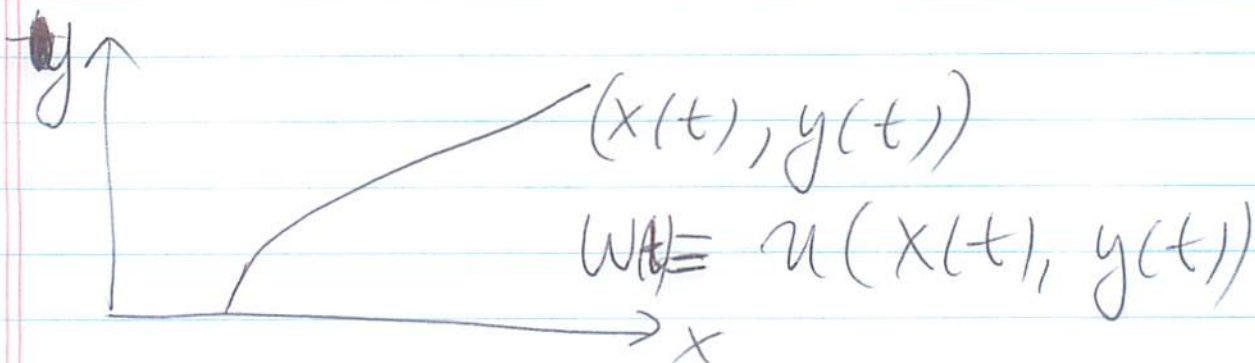 y
(x(t), y(t))
W(t)≡ u(x(t), y(t))
x